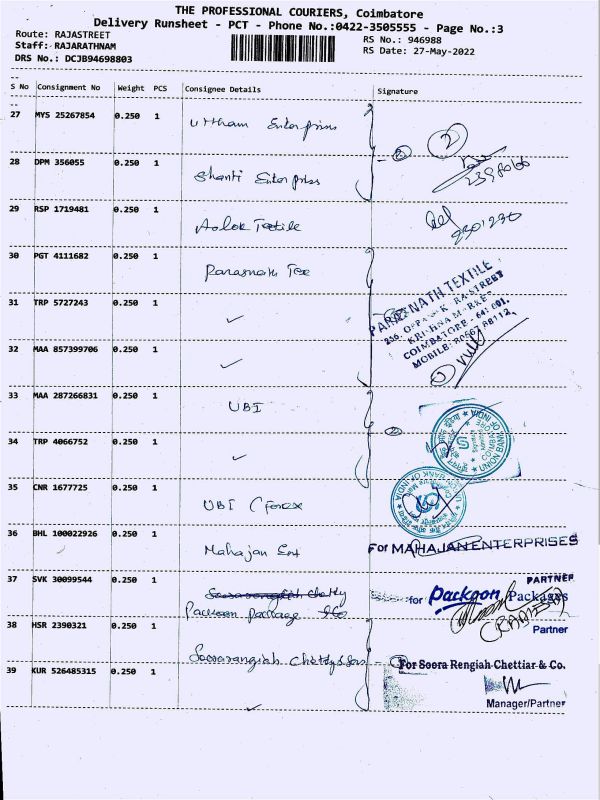 THE PROFESSIONAL COURIERS, Coimbatore
Delivery Runsheet - PCT - Phone No.:0422-3505555 - Page No.:3
Route: RAJASTREET
RS No.: 946988
Staff: RAJARATHNAM
RS Date: 27-May-2022
DRS No.: DCJB94698803
S No Consignment No Weight PCS Consignee Details Signature
27 MYS 25267854 0.250 1 Uttham Enterprises
2
28 DPM 356055 0.250 1 Shanti Enterprises
29 RSP 1719481 0.250 1 Ashok Textile
30 PGT 4111682 0.250 1 Parasnath Tex
PARASNATH TEXTILE
KRISHNA MARKET
COIMBATORE - 641 001.
31 TRP 5727243 0.250 1
32 MAA 857399706 0.250 1
33 MAA 287266831 0.250 1 UBI
UNION BANK OF INDIA
34 TRP 4066752 0.250 1
35 CNR 1677725 0.250 1 UBI (Forex
36 BHL 100022926 0.250 1 Mahajan Ent
For MAHAJAN ENTERPRISES
PARTNER
37 SVK 30099544 0.250 1 Packoon Package
for Packoon Packages
Partner
38 HSR 2390321 0.250 1 Soorarangiah Chetty & Sons
For Soora Rengiah Chettiar & Co.
39 KUR 526485315 0.250 1
Manager/Partner